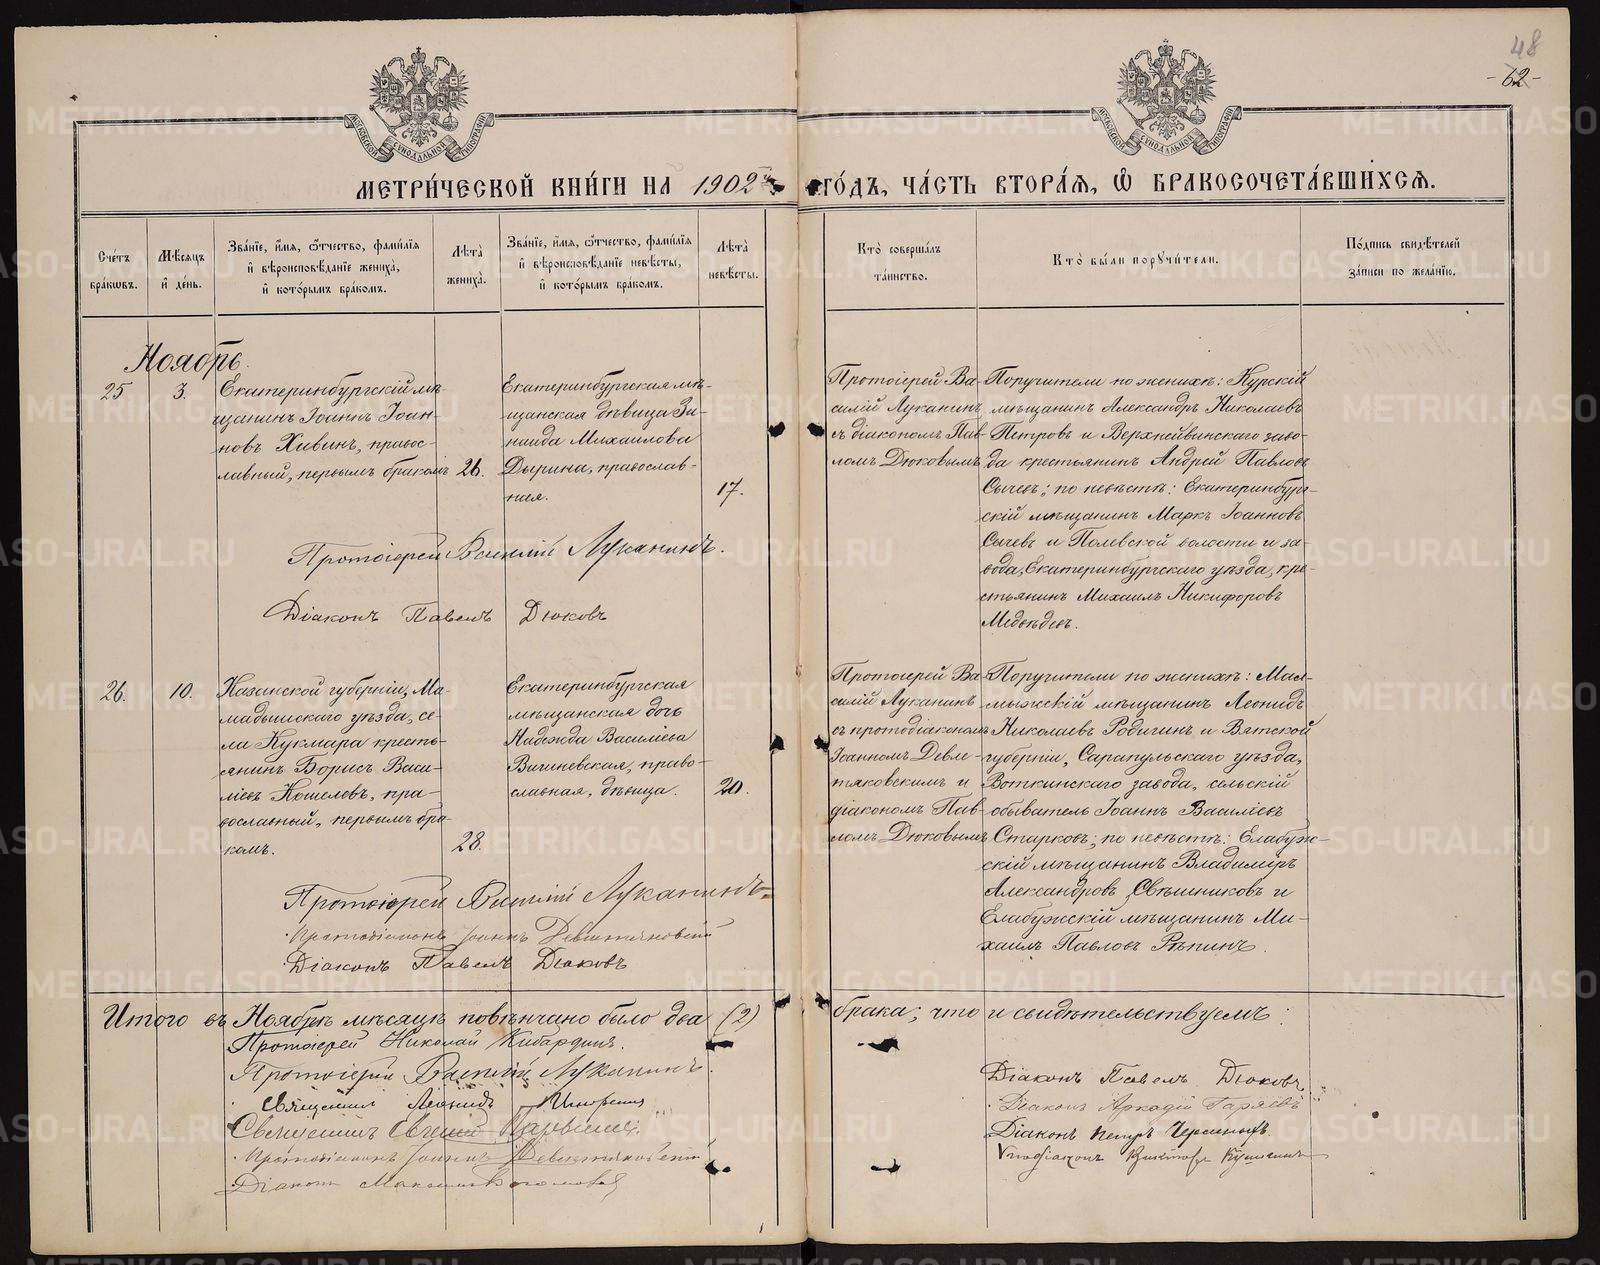 48
-62-
МОСКОВСКОЙ СѴНОДАЛЬНОЙ ТИПОГРАФІИ
МОСКОВСКОЙ СѴНОДАЛЬНОЙ ТИПОГРАФІИ
МЕТРИ́ЧЕСКОЙ КНИ́ГИ НА 1902й ГО́ДЪ, ЧА́СТЬ ВТОРА́Я, Ѿ БРАКОСОЧЕТА́ВШИХСЯ.
Сче́тъ бра́ковъ.
Мѣ́сяцъ и҆ де́нь.
Зва́нїе, и҆́мя, ѻ҆́тчество, фами́лїя и҆ вѣроисповѣ́данїе жениха̀, и҆ кото́рымъ бра́комъ.
Лѣта̀ жениха̀.
Зва́нїе, и҆́мя, ѻ҆́тчество, фами́лїя и҆ вѣроисповѣ́данїе невѣ́сты, и҆ кото́рымъ бра́комъ.
Лѣта̀ невѣ́сты.
Кто̀ соверша́лъ та́инство.
Кто̀ бы́ли порꙋчи́тели.
По́дпись свидѣ́телей за́писи по жела́нїю.
Ноябрь.
25
3.
Екатеринбургскій мѣ-
щанинъ Іоаннъ Іоан-
новъ Хивинъ, правос-
лавный, первымъ бракомъ
26.
Екатеринбургская мѣ-
щанская дѣвица Зи-
наида Михаилова
Дырина, православ-
ная.
17.
Протоіерей Ва-
силій Луканинъ
съ діакономъ Пав-
ломъ Дюковымъ
Поручители по женихѣ: Курскій
мѣщанинъ Александръ Николаевъ
Петровъ и Верхнейвинскаго заво-
да крестьянинъ Андрей Павловъ
Сычевъ; по невѣстѣ: Екатеринбург-
скій мѣщанинъ Маркъ Іоанновъ
Сычевъ и Полевской волости и за-
вода, Екатеринбургскаго уѣзда, кре-
стьянинъ Михаилъ Никифоровъ
Медвѣдевъ.
Протоіерей Василій Луканинъ.
Діаконъ Павелъ Дюковъ
26.
10.
Казанской губерніи, Ма-
мадышскаго уѣзда, се-
ла Кукмара кресть-
янинъ Борисъ Васи-
ліевъ Кошелевъ, пра-
вославный, первымъ бра-
комъ.
28.
Екатеринбургская
мѣщанская дочь
Надежда Василіева
Вишневская, право-
славная, дѣвица.
20.
Протоіерей Ва-
силій Луканинъ
съ протодіакономъ
Іоанномъ Девле-
тяковскимъ и
діакономъ Пав-
ломъ Дюковымъ
Поручители по женихѣ: Мал-
мыжскій мѣщанинъ Леонидъ
Николаевъ Родигинъ и Вятской
губерніи, Сарапульскаго уѣзда,
Воткинскаго завода, сельскій
обыватель Іоаннъ Василіевъ
Старковъ; по невѣстѣ: Елабуж-
скій мѣщанинъ Владимиръ
Александровъ Свѣшниковъ и
Елабужскій мѣщанинъ Ми-
хаилъ Павловъ Рѣпинъ.
Протоіерей Василій Луканинъ
Протодіаконъ Іоаннъ Девлетяковскій
Діаконъ Павелъ Дюковъ
Итого въ Ноябрѣ мѣсяцѣ повѣнчано было два (2) брака; что и свидѣтельствуемъ:
Протоіерей Николай Кибардинъ.
Протоіерей Василій Луканинъ.
Священникъ Леонидъ
Священникъ Евгеній
Протодіаконъ Іоаннъ Девлетяковскій
Діаконъ
Діаконъ Павелъ Дюковъ
Діаконъ Аркадій Гаряевъ
Діаконъ Петръ Черепановъ